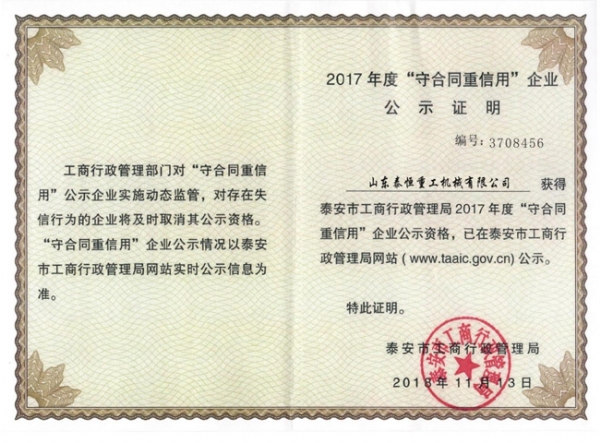 工商行政管理部门对“守合同重信
用”公示企业实施动态监管，对存在失
信行为的企业将及时取消其公示资格。
“守合同重信用”企业公示情况以泰安
市工商行政管理局网站实时公示信息为
准。
2017 年度“守合同重信用”企业
公示证明
编号:3708456
山东泰恒重工机械有限公司 获得
泰安市工商行政管理局 2017 年度“守合同
重信用”企业公示资格，已在泰安市工商行
政管理局网站（www.taaic.gov.cn）公示。
特此证明。
泰安市工商行政管理局
2018 年 11 月 13 日
泰安市工商行政管理局